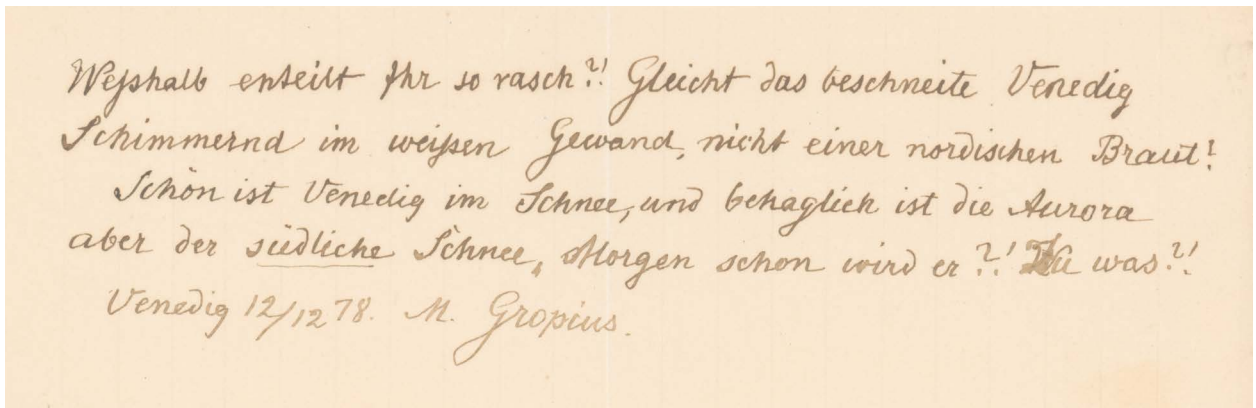 Weßhalb enteilt Ihr so rasch?! Gleicht das beschneite Venedig
Schimmernd im weißen Gewand, nicht einer nordischen Braut!
Schön ist Venedig im Schnee, und behaglich ist die Aurora
aber der südliche Schnee, Morgen schon wird er?! Zu was?!
Venedig 12/12 78. M. Gropius.